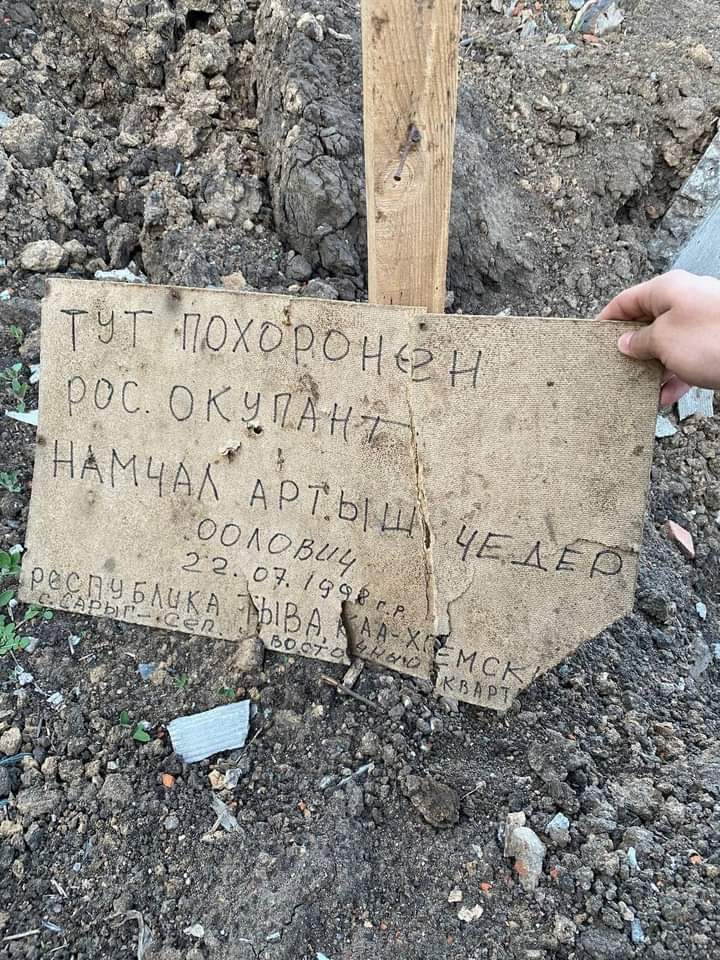 ТУТ ПОХОРОНЕН
РОС. ОКУПАНТ
НАМЧАЛ АРТЫШ ЧЕДЕР
ООЛОВИЧ
22.07.1998 г.р.
РЕСПУБЛИКА ТЫВА, КАА-ХЕМСК
С. САРЫГ-СЕП. ВОСТОЧНЫЙ КВАРТ